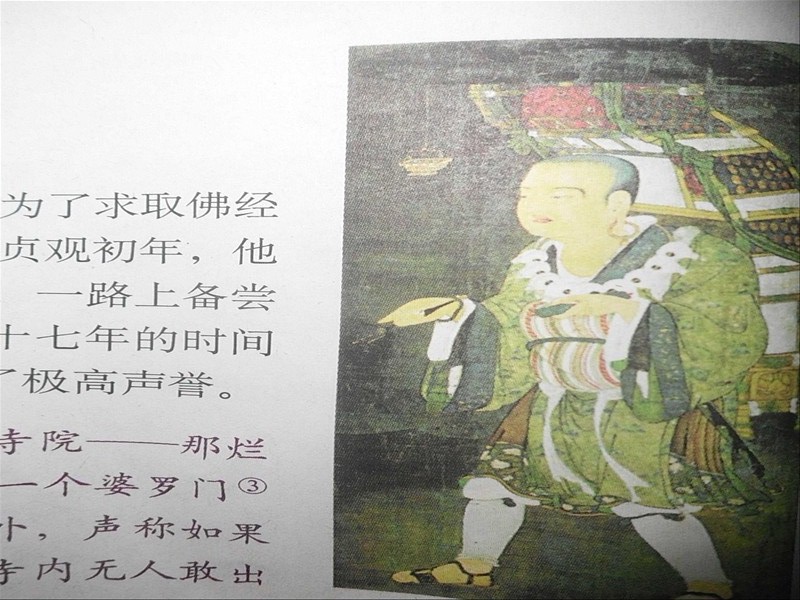 为了求取佛经
贞观初年，他
一路上备尝
十七年的时间
了极高声誉。
寺院——那烂
一个婆罗门③
外，声称如果
寺内无人敢出